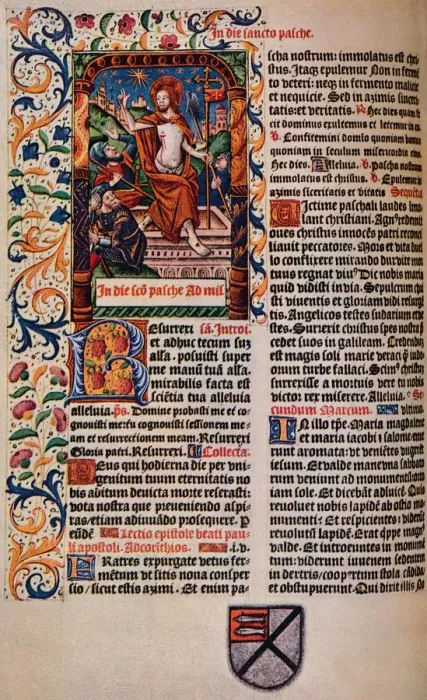 In die sancto pasche.
In die scõ pasche Ad mis.
Resurrexi sã. Introi.
et adhuc tecum sum
alla. posuisti super
me manũ tuã alla.
mirabilis facta est
sciẽtia tua alleluia
alleluia. ps. Domine probasti me et co-
gnouisti me: tu cognouisti sessionem me-
am et resurrectionem meam. Resurrexi
Gloria patri. Resurrexi. Collecta.
Deus qui hodierna die per vni-
genitum tuum eternitatis no
bis aditum deuicta morte reserasti:
vota nostra que preueniendo aspi-
ras/etiam adiuuãdo prosequere. P
eũdẽ Lectio epistole beati pau-
li apostoli. Ad corĩthios. .i. v.
Fratres expurgate vetus fer-
mẽtum vt sitis noua consper
sio/sicut estis azimi. Et enim pa-
scha nostrum: immolatus est chri
stus. Itaq; epulemur Non in fermẽ
to veteri: neq; in fermento malicie
et nequicie. Sed in azimis sinceri
tatis: et veritatis. Hec dies quam fe
cit dominus exultemus et letemur in ea
v. Confitemini domino quoniam bonus
quoniam in seculum misericordia eius
Hec dies. Alleluia. v. Pascha nostrum
immolatus est christus. v. Epulemur ĩ
azimis sĩceritatis et vitatis Sequẽtia
Uictime paschali laudes immo
lant christiani. Agn9 redemit
oues christus innocẽs patri recon
liauit peccatores. Mors et vita duel
lo conflixere mirando dux vite mor
tuus regnat viu9 Dic nobis maria
quid vidisti in via. Sepulcrum chri
sti viuentis et gloriam vidi resurgẽ
tis. Angelicos testes sudarium et ve
stes. Surrexit christus spes nostra p̃
cedet suos in galileam. Credendũ
est magis soli marie veraci q̃ iude
orum turbe fallaci. Scim9 christũ
surrexisse a mortuis vere tu nobis
victor rex miserere. Alleluia. Se-
cundum Marcum. vltimo.
In illo tp̃e. Maria magdalene
et maria iacobi et salome eme
runt aromata: vt veniẽtes vngerẽt
iesum. Et valde mane vna sabbato
rum veniunt ad monumentũ orto
iam sole. Et dicebãt adiuicẽ. Quis
reuoluet nobis lapidẽ ab ostio mo
numenti: Et respicientes: viderũt
reuolutũ lapidẽ. Erat q̃ppe magn9
valde. Et introeuntes in monumẽ
tum: viderunt iuuenem sedentem
in dextris/coop̃rtum stola cãdida/
et obstupuerunt. Qui dixit illis No